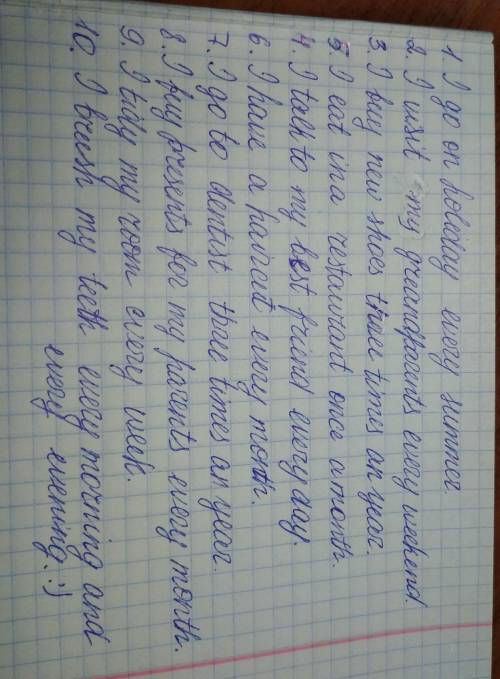 1. I go on holiday every summer.
2. I visit my grandparents every weekend.
3. I buy new shoes three times an year.
5. I eat in a restaurant once a month.
4. I talk to my best friend every day.
6. I have a haircut every month.
7. I go to dentist three times an year.
8. I buy presents for my parents every month.
9. I tidy my room every week.
10. I brush my teeth every morning and
every evening. :)